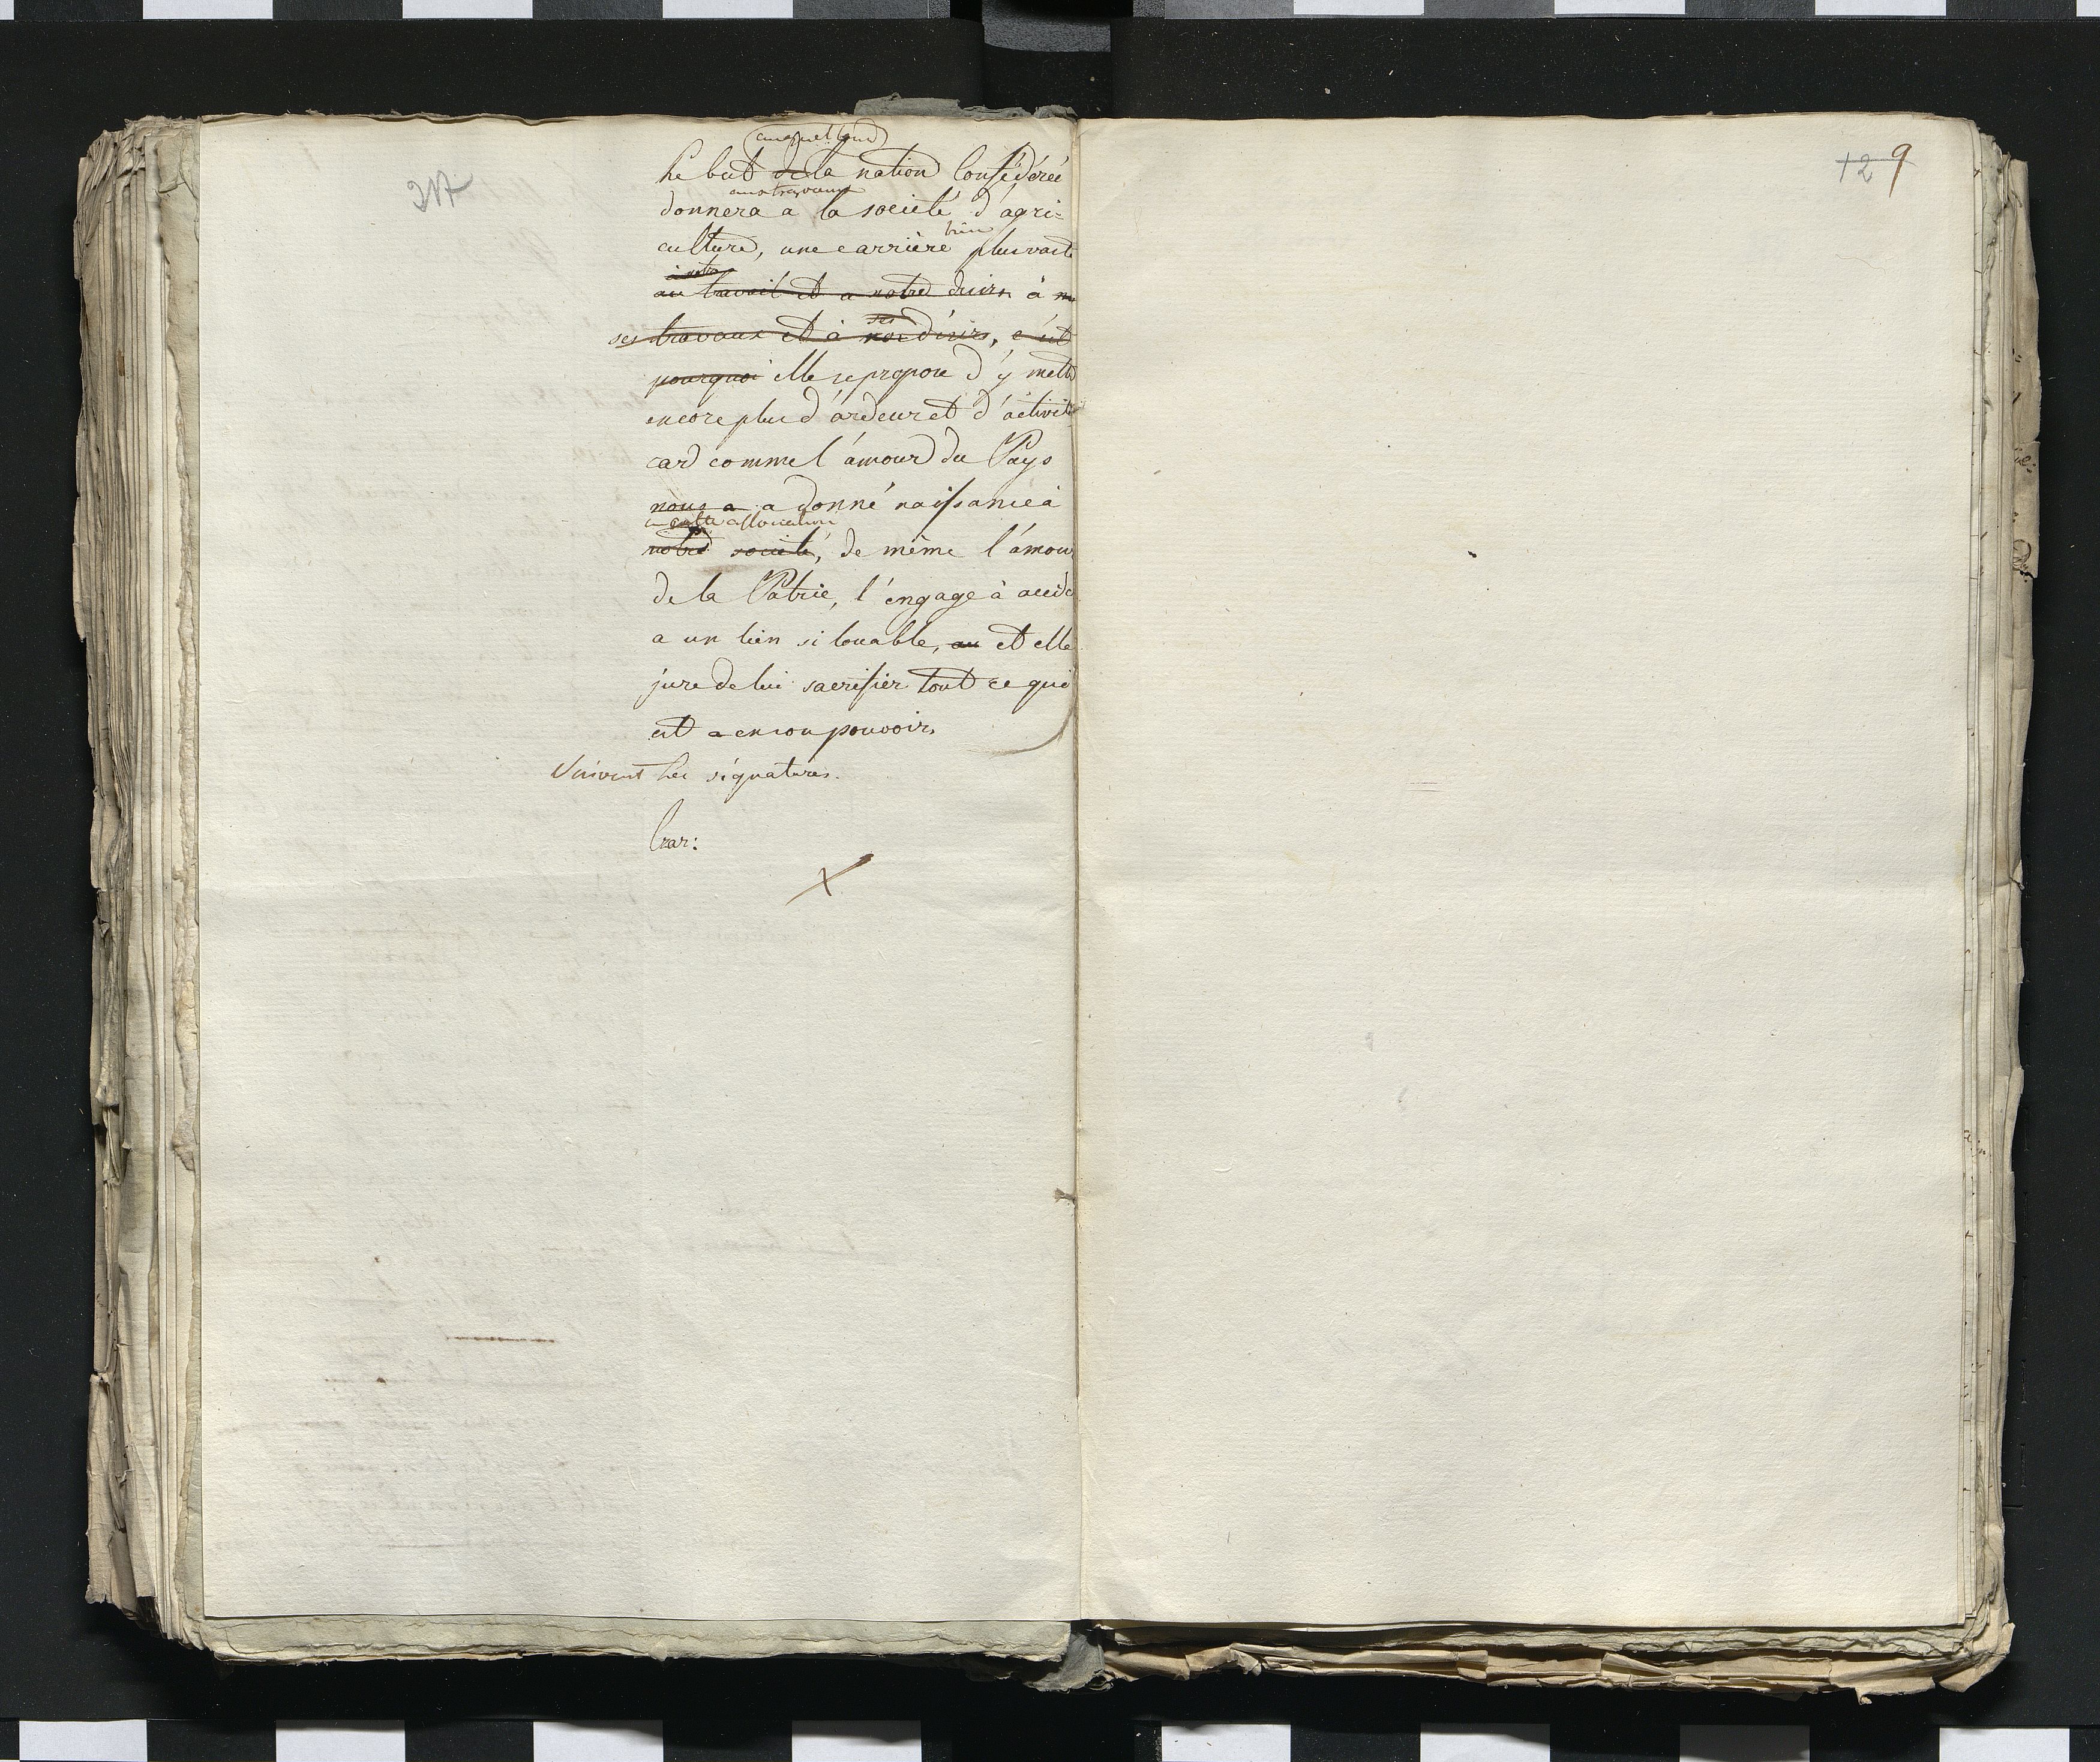 auquel tend
Le but de la nation Confédérée
aux travaux
donnera a la societé d'agri=
bien
culture, une carrière plus vaste
à notre
au travail et a notre desirs à
ses travaux et à nos désirs, c'est
ses
pourquoi elle se propose d'y mettre
encore plus d'ardeur et d'activité
car comme l'amour du Pays
nous a a donné naissance à
cette association
notre societé, de même l'amour
de la Patrie, l'engage à accéder
a un lien si louable, au et elle
jure de lui sacrifier tout ce qui
est a en son pouvoir.
Suivent les signatures.
12 9